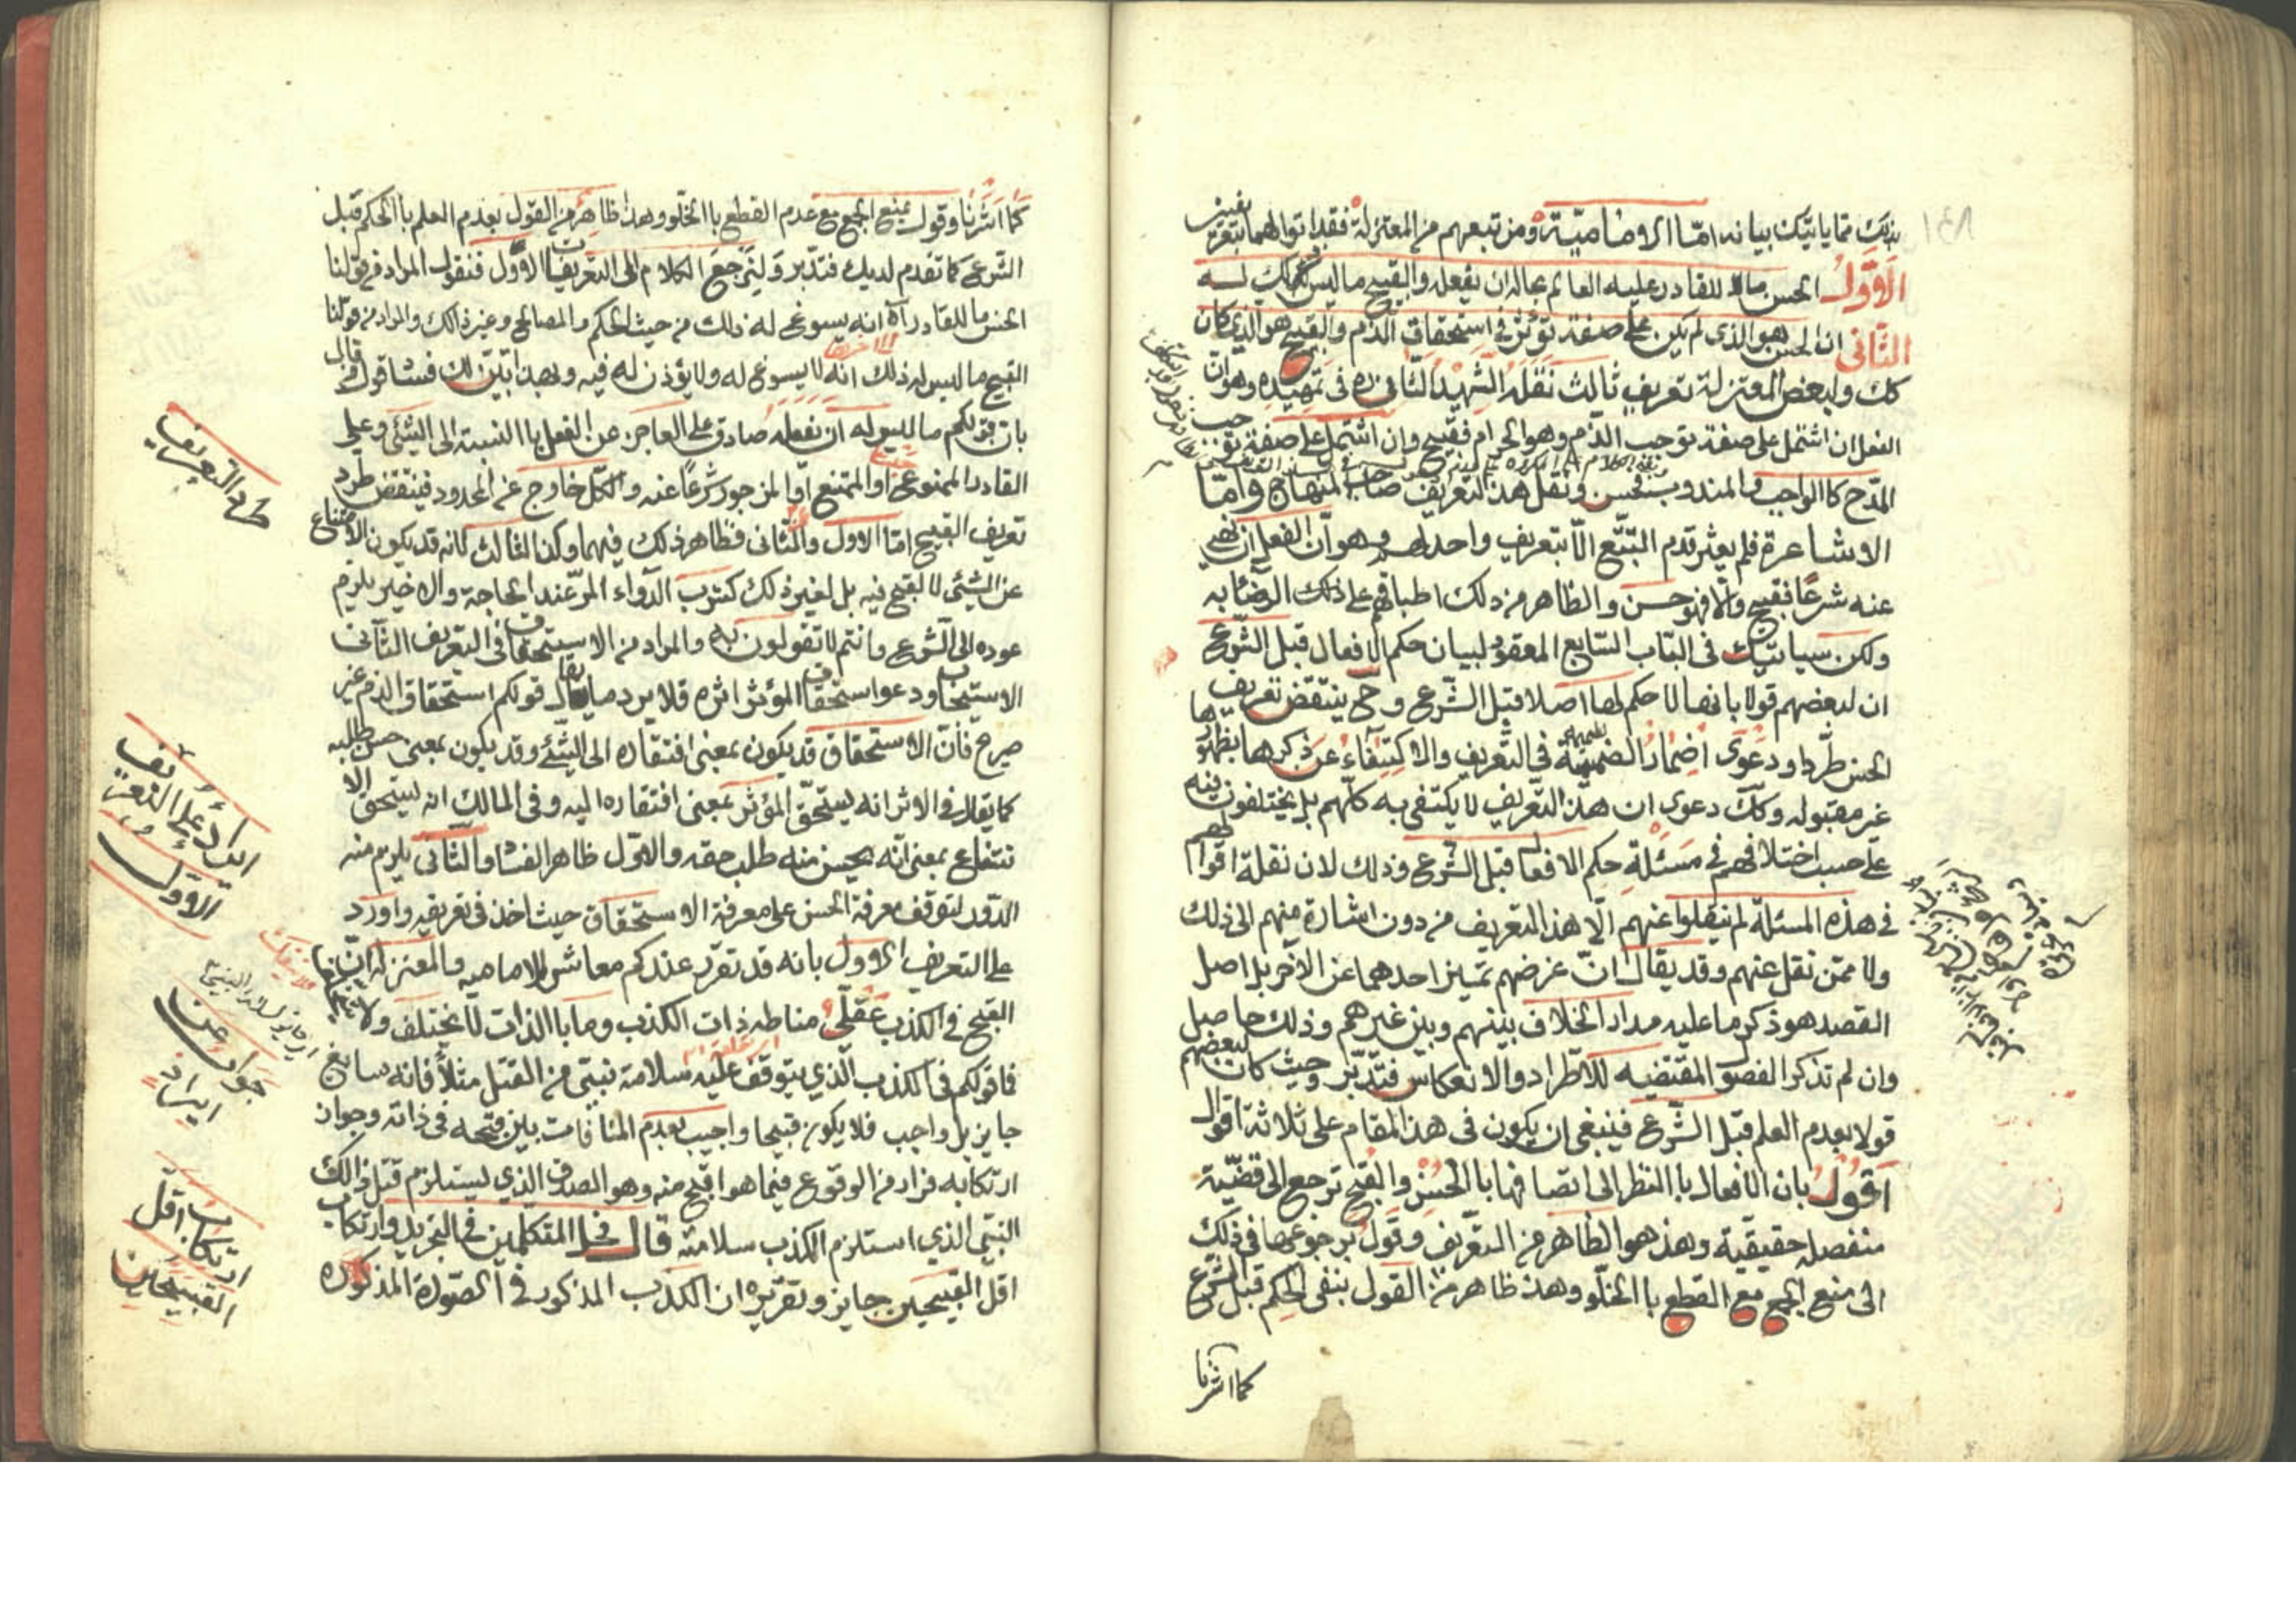 بذلك مما ياتيك بيانه اما الامامية ومن تبعهم من المعتزلة فقد اتوا لهما بتعريفين
الاول الحسن ما للقادر عليه العالم بحاله ان يفعله والقبيح ما ليس كذلك
الثانى ان الحسن هو الذى لم يكن على صفة تؤثر فى استحقاق الذم والقبيح هو الذى كان
كك ولبعض المعتزلة تعريف ثالث نقله الشهيد الثانى ره فى تمهيده وهو ان
الفعل ان اشتمل على صفة توجب الذم وهو الحرام فقبيح وان اشتمل على صفة توجب
المدح كاالواجب والمندوب فحسن ونقل هذا التعريف صاحب المنهاج واما
الاشاعرة فلم يعثر قدم التتبع الا بتعريف واحد لهم وهو ان الفعل ان نهى
عنه شرعا فقبيح والا فهو حسن والظاهر من ذلك اطباقهم على ذلك الرضا به
ولكن سياتيك فى الباب السابع المعقود لبيان حكم الافعال قبل الشرع
ان لبعضهم قولا بانها لا حكم لها اصلا قبل الشرع وح ينتقض تعريف
الحسن طردا ودعوى اضمار الضميمة فى التعريف والاكتفاء عن ذكرها بظهورها
غير مقبوله وكك دعوى ان هذا التعريف لا يكتفى به كلهم بل يختلفون فيه
على حسب اختلافهم فى مسئلة حكم الافعال قبل الشرع وذلك لان نقلة اقوالهم
فى هذه المسئلة لم ينقلوا عنهم الا هذا التعريف من دون اشارة منهم الى ذلك
ولا ممن نقل عنهم وقد يقال ان غرضهم تميز احدهما عن الآخر بل اصل
القصد هو ذكر ما عليه مدار الخلاف بينهم وبين غيرهم وذلك حاصل
وان لم تذكر الفصول المقتضيه للاطراد والانعكاس فتدبر وحيث كان لبعضهم
قولا بعدم العلم قبل الشرع فينبغى ان يكون فى هذا المقام على ثلاثة اقوال
اقول بان الافعال باالنظر الى اتصافها باالحسن والقبح ترجع الى قضية
منفصله حقيقية وهذ هو الظاهر من التعريف وقول برجوعها فى ذلك
الى منع الجمع مع القطع باالخلو وهذ ظاهر من القول بنفى الحكم قبل الشرع
كما اشرنا
كما اشرنا وقول بمنع الجمع مع عدم القطع باالخلو وهذا ظاهر من القول بعدم العلم باالحكم قبل
الشرع كما تقدم لديك فتدبر ولنرجع الكلام الى التعريف الاول فنقول المراد من قولنا
الحسن ما للقادر آه انه يسوغ له ذلك من حيث الحكم والمصالح وغير ذالك والمراد من قولنا
القبيح ما ليس له ذلك انه لا يسوغ له ولا يؤذن له فيه وبهذا تبين لك فساد قول من قال
بان قولكم ما ليس له ان يفعله صادق على العاجز عن الفعل باالنسبة الى الشئ وعلى
القادر الممنوع عنه او الممتنع او المزجور شرعا عنه والكل خارج عن المحدود فينتقض طرد
تعريف القبيح اما الاول والثانى فظاهر ذلك فيهما وكذا الثالث لانه قد يكون الامتناع
عن الشئ لا لقبح فيه بل لغير ذلك كشرب الدواء المر عند الحاجة والاخير يلزم
عوده الى الشرع وانتم لا تقولون به والمراد من الاستحقاق فى التعريف الثانى
الاستيجاب ودعوا استحقاق المؤثر اثره فلا يرد ما يقال قولكم استحقاق الذم غير
صريح فان الاستحقاق قد يكون بمعنى افتقاره الى الشئ وقد يكون بمعنى حسن طلبه
كما يقال فى الاثر انه يستحق المؤثر بمعنى افتقاره اليه وفى المالك انه يستحق الا
نتفاع بمعنى انه يحسن منه طلب حقه والاول ظاهر الفساد والثانى يلزم منه
الدور لتوقف معرفة الحسن على معرفة الاستحقاق حيث اخذ فى تعريفه واورد
على التعريف الاول بانه قد تقرر عندكم معاشر الامامية والمعتزله ان
القبح فى الكذب عقلى مناطه ذات الكذب وما باالذات لا يختلف ولا
فما قولكم فى الكذب الذي يتوقف عليه سلامة نبي من القتل مثلا فانه سائغ
جايز بل واجب فلا يكون قبيحا واجيب بعدم المنافات بين قبحه فى ذاته وجواز
ارتكابه فرارا من الوقوع فيما هو اقبح منه وهو الصدق الذي يستلزم قتل ذالك
النبي الذي استلزم الكذب سلامته قال فخر المتكلمين فى التجريد وارتكاب
اقل القبيحين جايز وتقريره ان الكذب المذكور فى الصورة المذكوره
طرد التعريف
ايراد على التعريف
الاول
جواب عن
ايراد
ارتكاب اقل
القبيحين